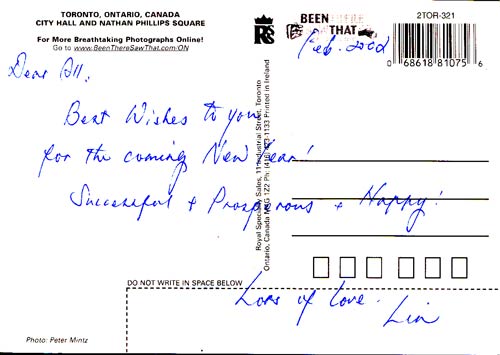 TORONTO, ONTARIO, CANADA
CITY HALL AND NATHAN PHILLIPS SQUARE
For More Breathtaking Photographs Online!
Go to www.BeenThereSawThat.com/ON
BEEN THERE
THAT
2TOR-321
0 68618 81075 6
Feb. 2002
Dear All,
Best Wishes to you
for the coming New Year!
Successful + Prosperous + Happy!
Lots of Love.
Lin
Royal Specialty Sales, Industrial Street, Toronto
Ontario, Canada 1Z2 Ph: (416) 1133 Printed in Ireland
DO NOT WRITE IN SPACE BELOW
Photo: Peter Mintz